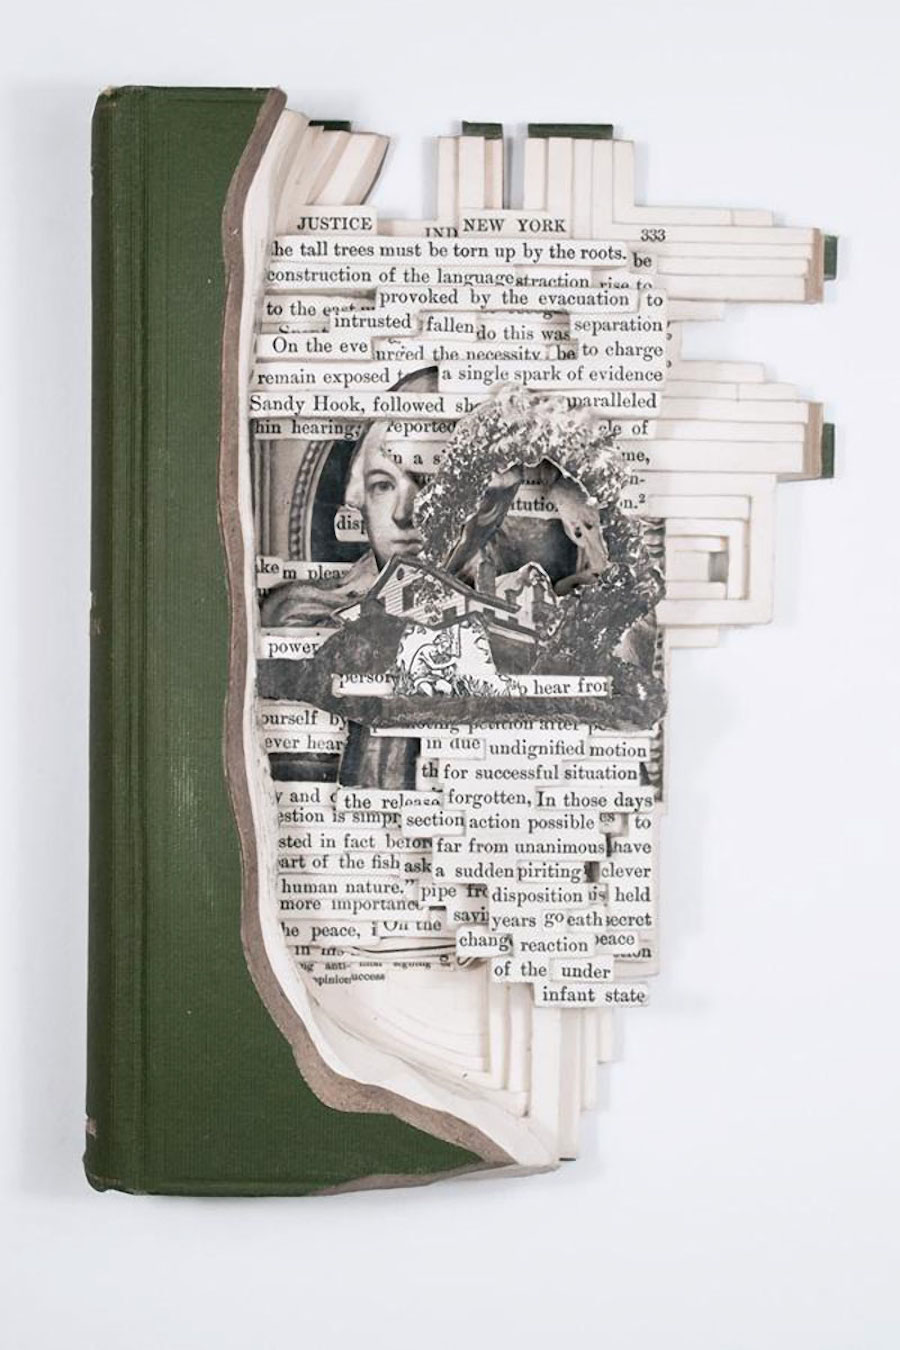 JUSTICE IND NEW YORK 333
he tall trees must be torn up by the roots. be
construction of the language straction rise to
to the provoked by the evacuation to
intrusted fallen do this was separation
On the eve urged the necessity be to charge
remain exposed t a single spark of evidence
Sandy Hook, followed sh paralleled
hin hearing; reported cle of
n a s me,
itutio n.²
disp
ke m pleas
power
person o hear from
ourself by petition after
ever hear in due undignified motion
th for successful situation
y and the release forgotten, In those days
estion is simpr section action possible es to
sted in fact befor far from unanimous have
art of the fish ask a sudden piriting clever
human nature." pipe fro disposition is held
more importance savi years go eath secret
he peace, i On the chang reaction peace
in his
ng anti- of the under
opinion uccess infant state